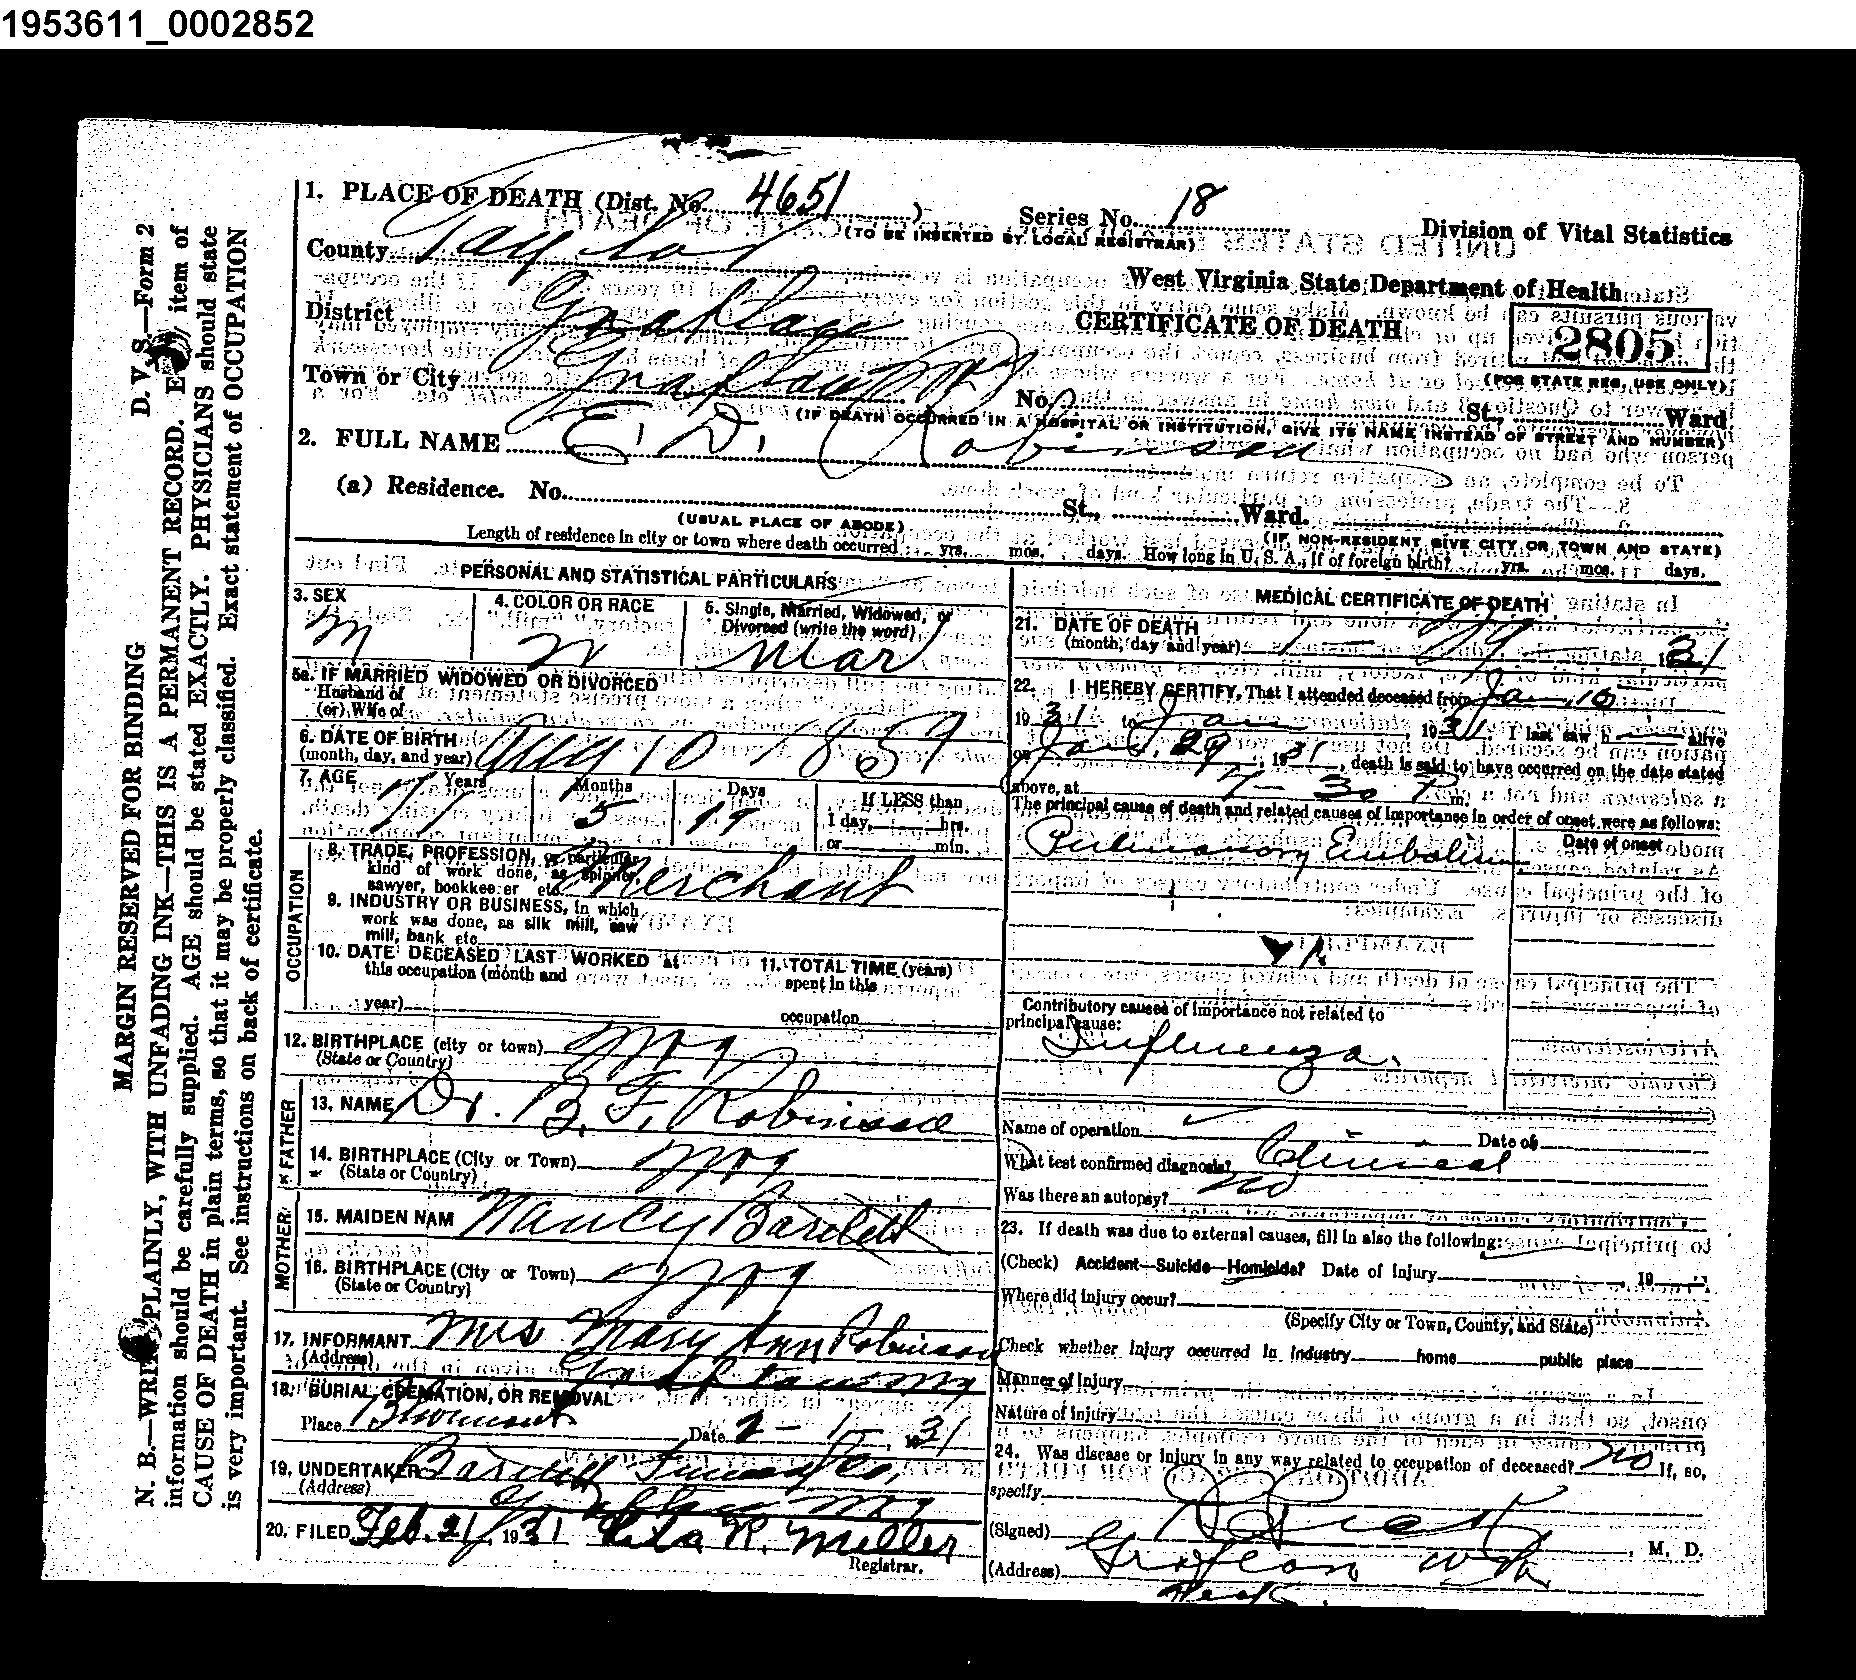 1953611_0002852
1. PLACE OF DEATH (Dist. No. 4651 )
Series No. 18
(TO BE INSERTED BY LOCAL REGISTRAR)
Division of Vital Statistics
County Taylor
West Virginia State Department of Health
District Grafton
CERTIFICATE OF DEATH
2805
(FOR STATE REG. USE ONLY)
Town or City Grafton No. St., Ward
(IF DEATH OCCURRED IN A HOSPITAL OR INSTITUTION, GIVE ITS NAME INSTEAD OF STREET AND NUMBER)
2. FULL NAME E. D. Robinson
(a) Residence. No. St., Ward.
(USUAL PLACE OF ABODE)
(IF NON-RESIDENT GIVE CITY OR TOWN AND STATE)
Length of residence in city or town where death occurred yrs. mos. days. How long in U. S. A., if of foreign birth? yrs. mos. days.
PERSONAL AND STATISTICAL PARTICULARS
3. SEX
M
4. COLOR OR RACE
W
5. Single, Married, Widowed, or
Divorced (write the word)
Mar
5a. IF MARRIED WIDOWED OR DIVORCED
Husband of
(or) Wife of
6. DATE OF BIRTH
(month, day, and year) Aug 10 1859
7. AGE Years Months Days If LESS than
71 5 19 1 day, hrs.
or min.
OCCUPATION
8. TRADE, PROFESSION, or particular
kind of work done, as spinner,
sawyer, bookkeeper etc. Merchant
9. INDUSTRY OR BUSINESS, in which
work was done, as silk mill, saw
mill, bank etc.
10. DATE DECEASED LAST WORKED at
this occupation (month and
year)
11. TOTAL TIME (years)
spent in this
occupation
12. BIRTHPLACE (city or town)
(State or Country)
FATHER
13. NAME Dr. B. F. Robinson
14. BIRTHPLACE (City or Town)
(State or Country)
MOTHER
15. MAIDEN NAM Nancy Bartlett
16. BIRTHPLACE (City or Town)
(State or Country)
17. INFORMANT Mrs Mary Ann Robinson
(Address) Grafton
18. BURIAL, CREMATION, OR REMOVAL
Place Bluemont Date 2-1, 1931
19. UNDERTAKER Bartlett Funeral Co,
(Address) Grafton
20. FILED Feb. 21, 1931 R. Miller
Registrar.
MEDICAL CERTIFICATE OF DEATH
21. DATE OF DEATH
(month, day and year) 1 - 29, 1931
22. I HEREBY CERTIFY, That I attended deceased from Jan, 16
1931 to Jan, 1931. I last saw h alive
on Jan. 29, 1931, death is said to have occurred on the date stated
above, at 7-30 P m.
The principal cause of death and related causes of importance in order of onset were as follows:
Date of onset
Pulmonary Embolism
Contributory causes of importance not related to
principal cause:
Influenza.
Name of operation Date of
What test confirmed diagnosis? Clinical
Was there an autopsy? No
23. If death was due to external causes, fill in also the following:
(Check) Accident—Suicide—Homicide? Date of injury 19
Where did injury occur?
(Specify City or Town, County, and State)
Check whether injury occurred in industry home public place
Manner of Injury
Nature of injury
24. Was disease or injury in any way related to occupation of deceased? No If, so,
specify
(Signed) Peck, M. D.
(Address) Grafton W Va
Peck.
MARGIN RESERVED FOR BINDING D. V. S.—Form 2
N. B.—WRITE PLAINLY, WITH UNFADING INK—THIS IS A PERMANENT RECORD. Every item of
information should be carefully supplied. AGE should be stated EXACTLY. PHYSICIANS should state
CAUSE OF DEATH in plain terms, so that it may be properly classified. Exact statement of OCCUPATION
is very important. See instructions on back of certificate.